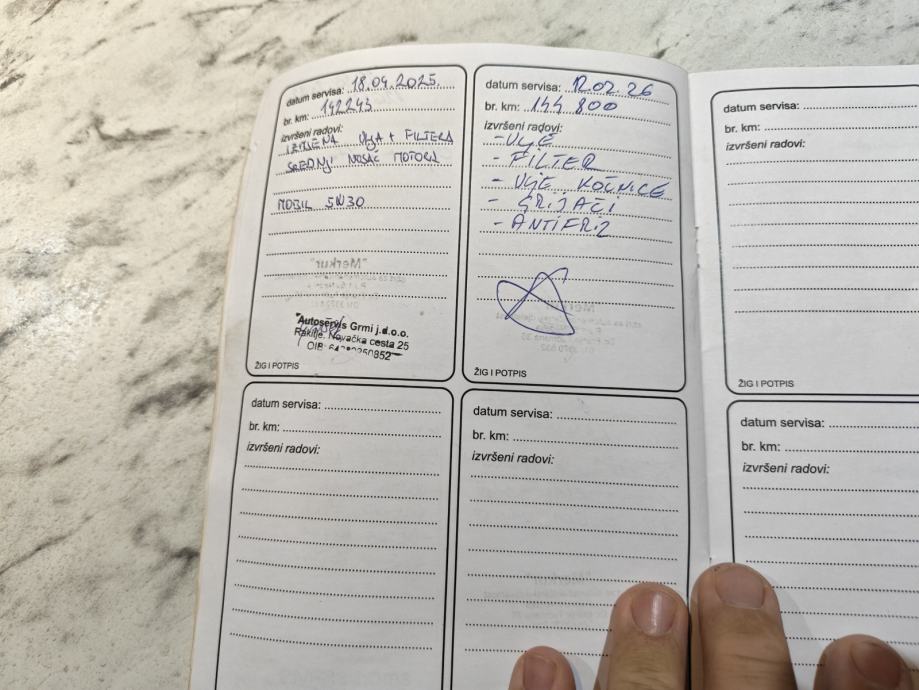 datum servisa: 18.04.2025.
br. km: 142243
izvršeni radovi:
IZMJENA ULJA + FILTERA
SREDNJI NOSAČ MOTORA
MOBIL 5W30
"Merkur"
Autoservis Grmi j.d.o.o.
Rakitje, Novačka cesta 25
OIB:
ŽIG I POTPIS
datum servisa: 12.02.26
br. km: 144 800
izvršeni radovi:
- ULJE
- FILTER
- ULJE KOČNICE
- GRIJAČI
- ANTIFRIZ
ŽIG I POTPIS
datum servisa:
br. km:
izvršeni radovi:
ŽIG I POTPIS
datum servisa:
br. km:
izvršeni radovi:
datum servisa:
br. km:
izvršeni radovi:
datum servisa:
br. km:
izvršeni radovi: